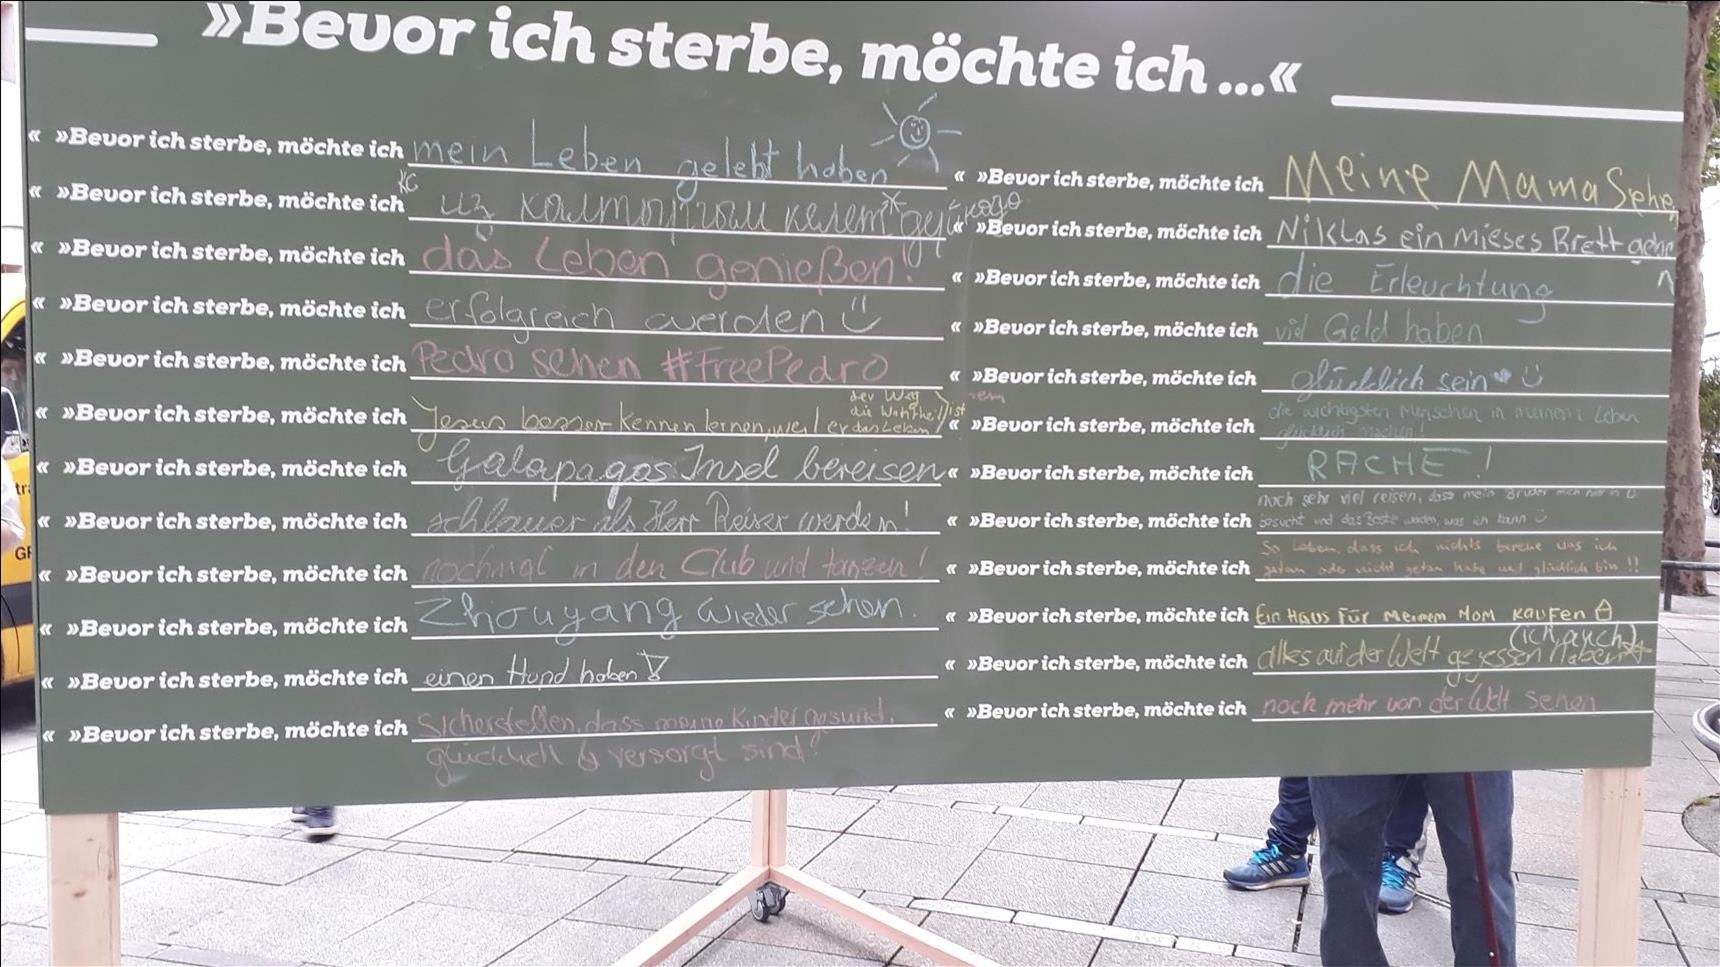 »Bevor ich sterbe, möchte ich ...«
« »Bevor ich sterbe, möchte ich mein Leben gelebt haben
« »Bevor ich sterbe, möchte ich
« »Bevor ich sterbe, möchte ich das Leben genießen!
« »Bevor ich sterbe, möchte ich erfolgreich werden
« »Bevor ich sterbe, möchte ich Pedro sehen #FreePedro
« »Bevor ich sterbe, möchte ich Jesus besser kennen lernen, weil er der Weg die Wahrheit das Leben ist
« »Bevor ich sterbe, möchte ich Galapagos Insel bereisen
« »Bevor ich sterbe, möchte ich schlauer als Herr Reiser werden!
« »Bevor ich sterbe, möchte ich nochmal in den Club und tanzen!
« »Bevor ich sterbe, möchte ich Zhouyang wieder sehen.
« »Bevor ich sterbe, möchte ich einen Hund haben!
« »Bevor ich sterbe, möchte ich Sicherstellen, dass meine Kinder gesund,
glücklich & versorgt sind!
« »Bevor ich sterbe, möchte ich Meine Mama Sehen
« »Bevor ich sterbe, möchte ich Niklas ein mieses Brett
« »Bevor ich sterbe, möchte ich die Erleuchtung
« »Bevor ich sterbe, möchte ich viel Geld haben
« »Bevor ich sterbe, möchte ich glücklich sein
« »Bevor ich sterbe, möchte ich die wichtigsten Menschen in meinem Leben
glücklich machen!
« »Bevor ich sterbe, möchte ich RACHE!
noch sehr viel reisen, dass mein Bruder mich
« »Bevor ich sterbe, möchte ich besucht und das Beste werden, was ich kann
So leben, dass ich nichts bereue was ich
« »Bevor ich sterbe, möchte ich getan oder nicht getan habe und glücklich bin!!
« »Bevor ich sterbe, möchte ich Ein Haus für meinem Mom kaufen
(ich auch)
« »Bevor ich sterbe, möchte ich alles auf der Welt gegessen haben
« »Bevor ich sterbe, möchte ich noch mehr von der Welt sehen